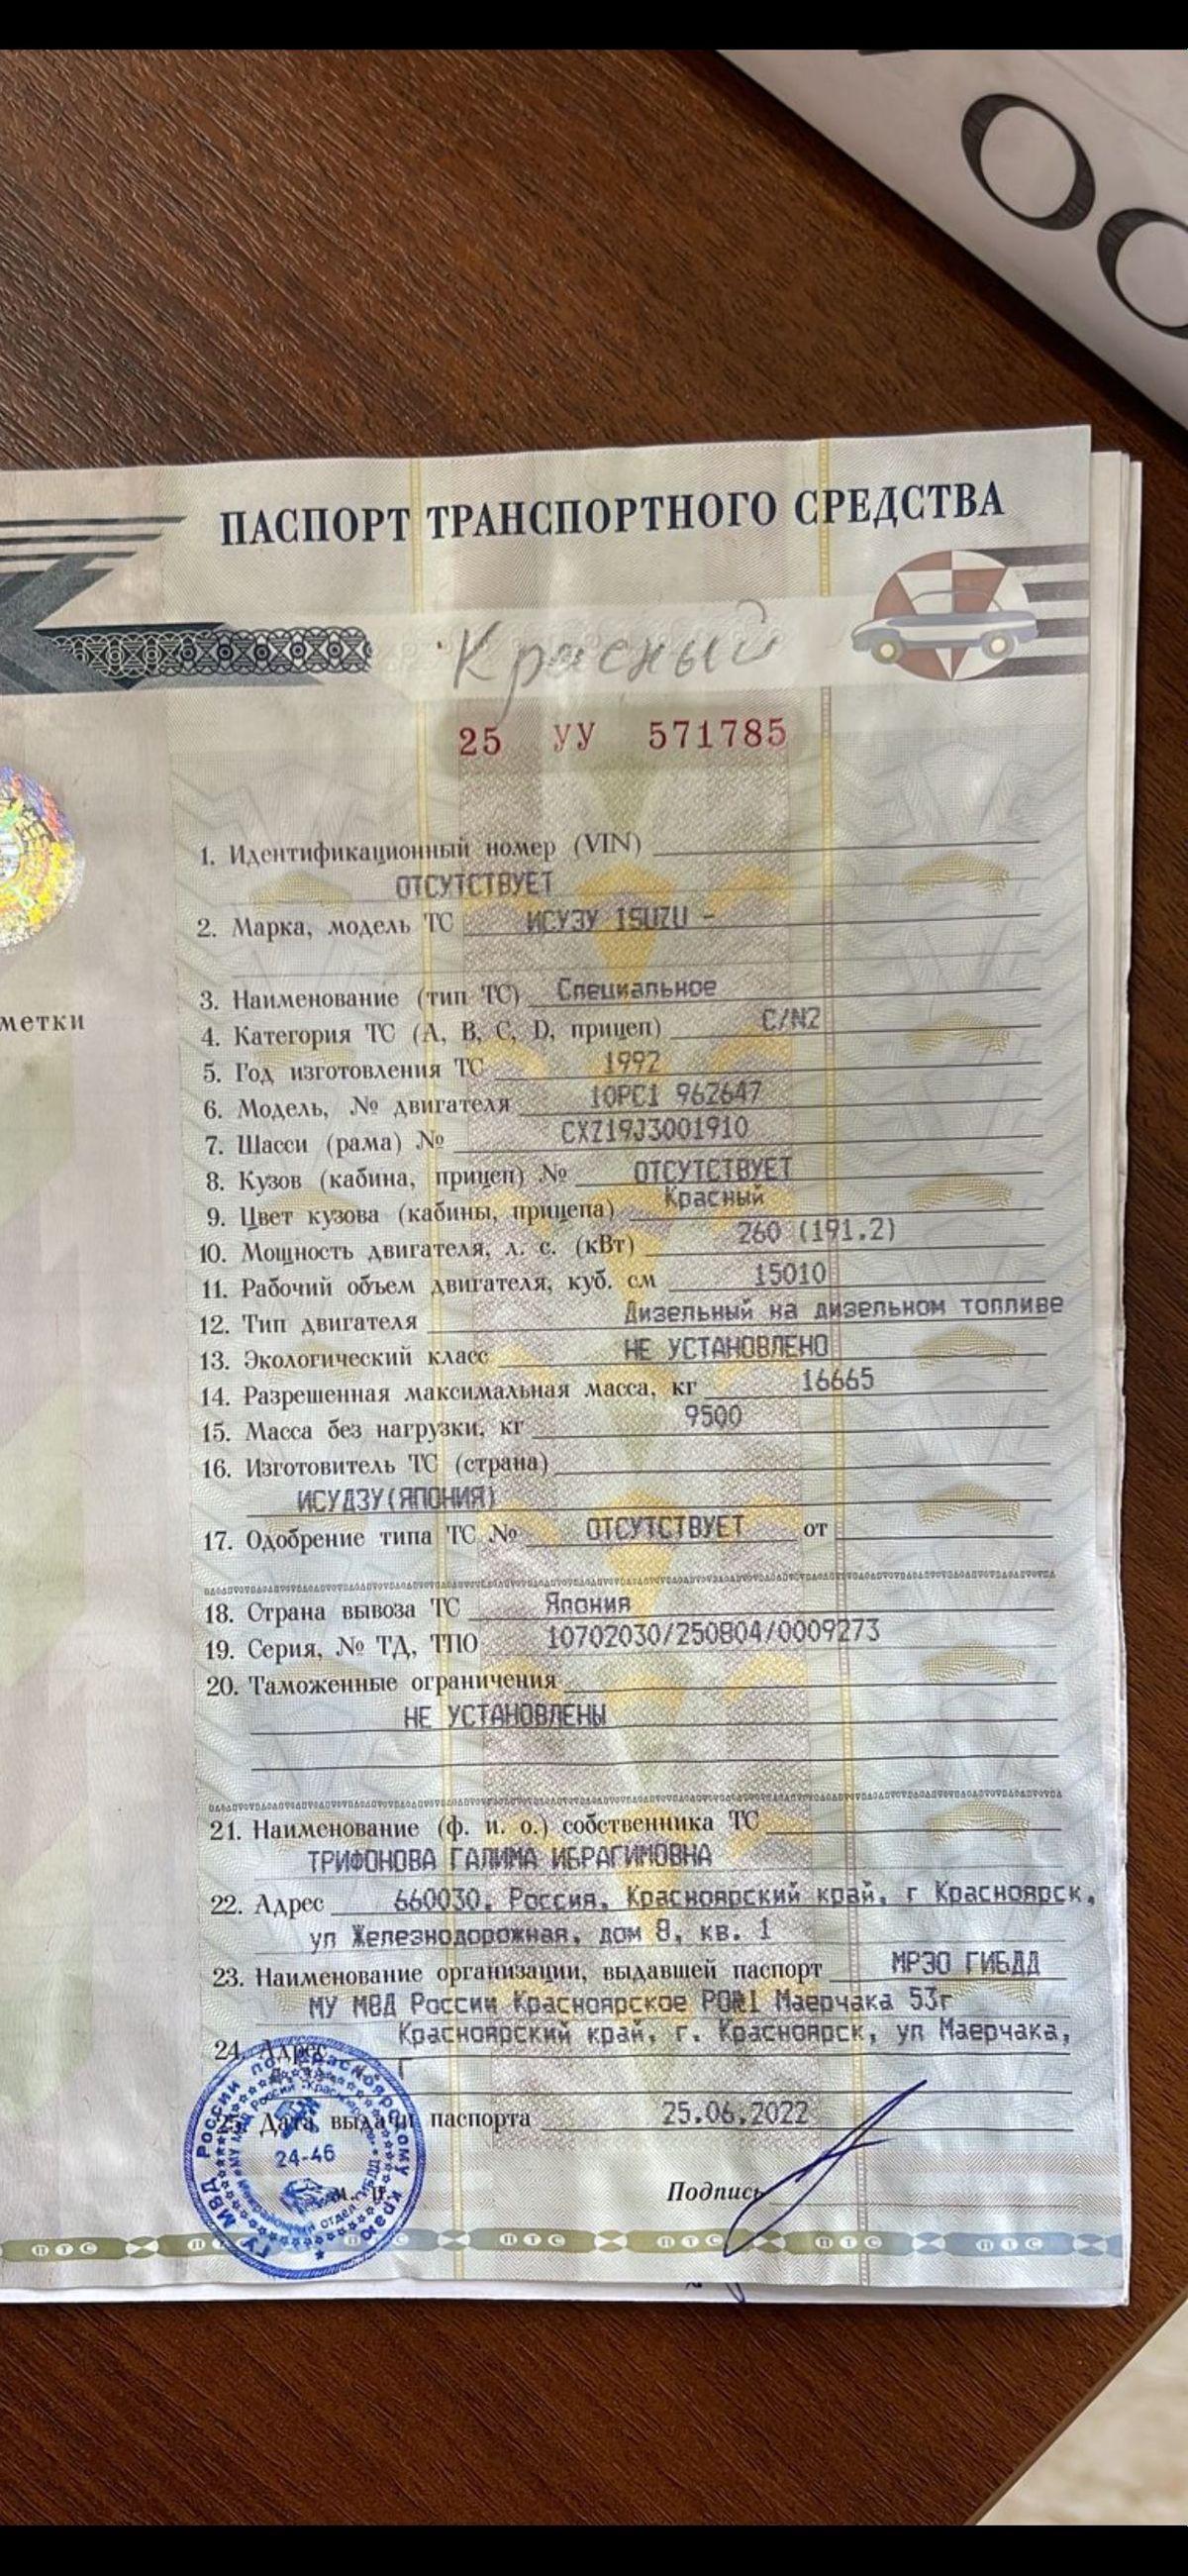 ОС
ПАСПОРТ ТРАНСПОРТНОГО СРЕДСТВА
Красный
25 УУ 571785
метки
1. Идентификационный номер (VIN)
ОТСУТСТВУЕТ
2. Марка, модель ТС ИСУЗУ ISUZU -
3. Наименование (тип ТС) Специальное
4. Категория ТС (A, B, C, D, прицеп) C/N2
5. Год изготовления ТС 1992
6. Модель, № двигателя 10PC1 962647
7. Шасси (рама) № CXZ19J3001910
8. Кузов (кабина, прицеп) № ОТСУТСТВУЕТ
9. Цвет кузова (кабины, прицепа) Красный
10. Мощность двигателя, л. с. (кВт) 260 (191.2)
11. Рабочий объем двигателя, куб. см 15010
12. Тип двигателя Дизельный на дизельном топливе
13. Экологический класс НЕ УСТАНОВЛЕНО
14. Разрешенная максимальная масса, кг 16665
15. Масса без нагрузки, кг 9500
16. Изготовитель ТС (страна)
ИСУДЗУ(ЯПОНИЯ)
17. Одобрение типа ТС № ОТСУТСТВУЕТ от
18. Страна вывоза ТС Япония
19. Серия, № ТД, ТПО 10702030/250804/0009273
20. Таможенные ограничения
НЕ УСТАНОВЛЕНЫ
21. Наименование (ф. и. о.) собственника ТС
ТРИФОНОВА ГАЛИМА ИБРАГИМОВНА
22. Адрес 660030, Россия, Красноярский край, г Красноярск,
ул Железнодорожная, дом 8, кв. 1
23. Наименование организации, выдавшей паспорт МРЭО ГИБДД
МУ МВД России Красноярское РО№1 Маерчака 53г
24. Адрес Красноярский край, г. Красноярск, ул Маерчака,
г
Дата выдачи паспорта 25.06.2022
24-46
М. П.
Подпись
ГУ МВД России по Красноярскому краю
ПТС ПТС ПТС ПТС ПТС